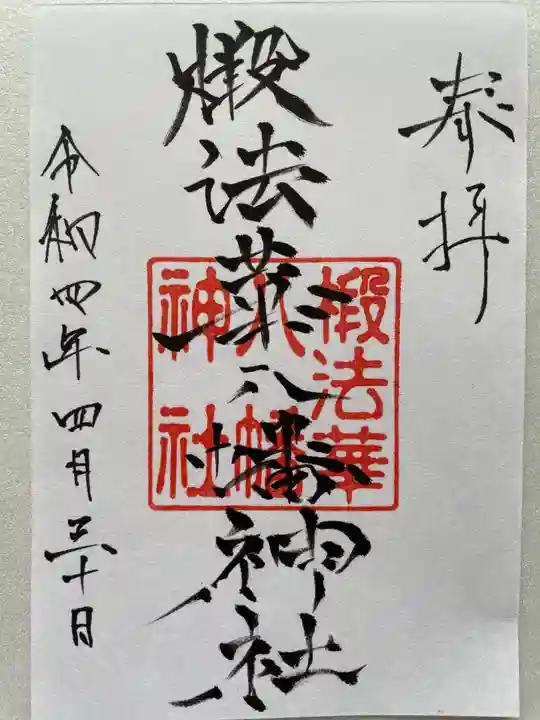 奉拝
煆法華八幡神社
煆法華
八幡
神社
令和四年四月三十日